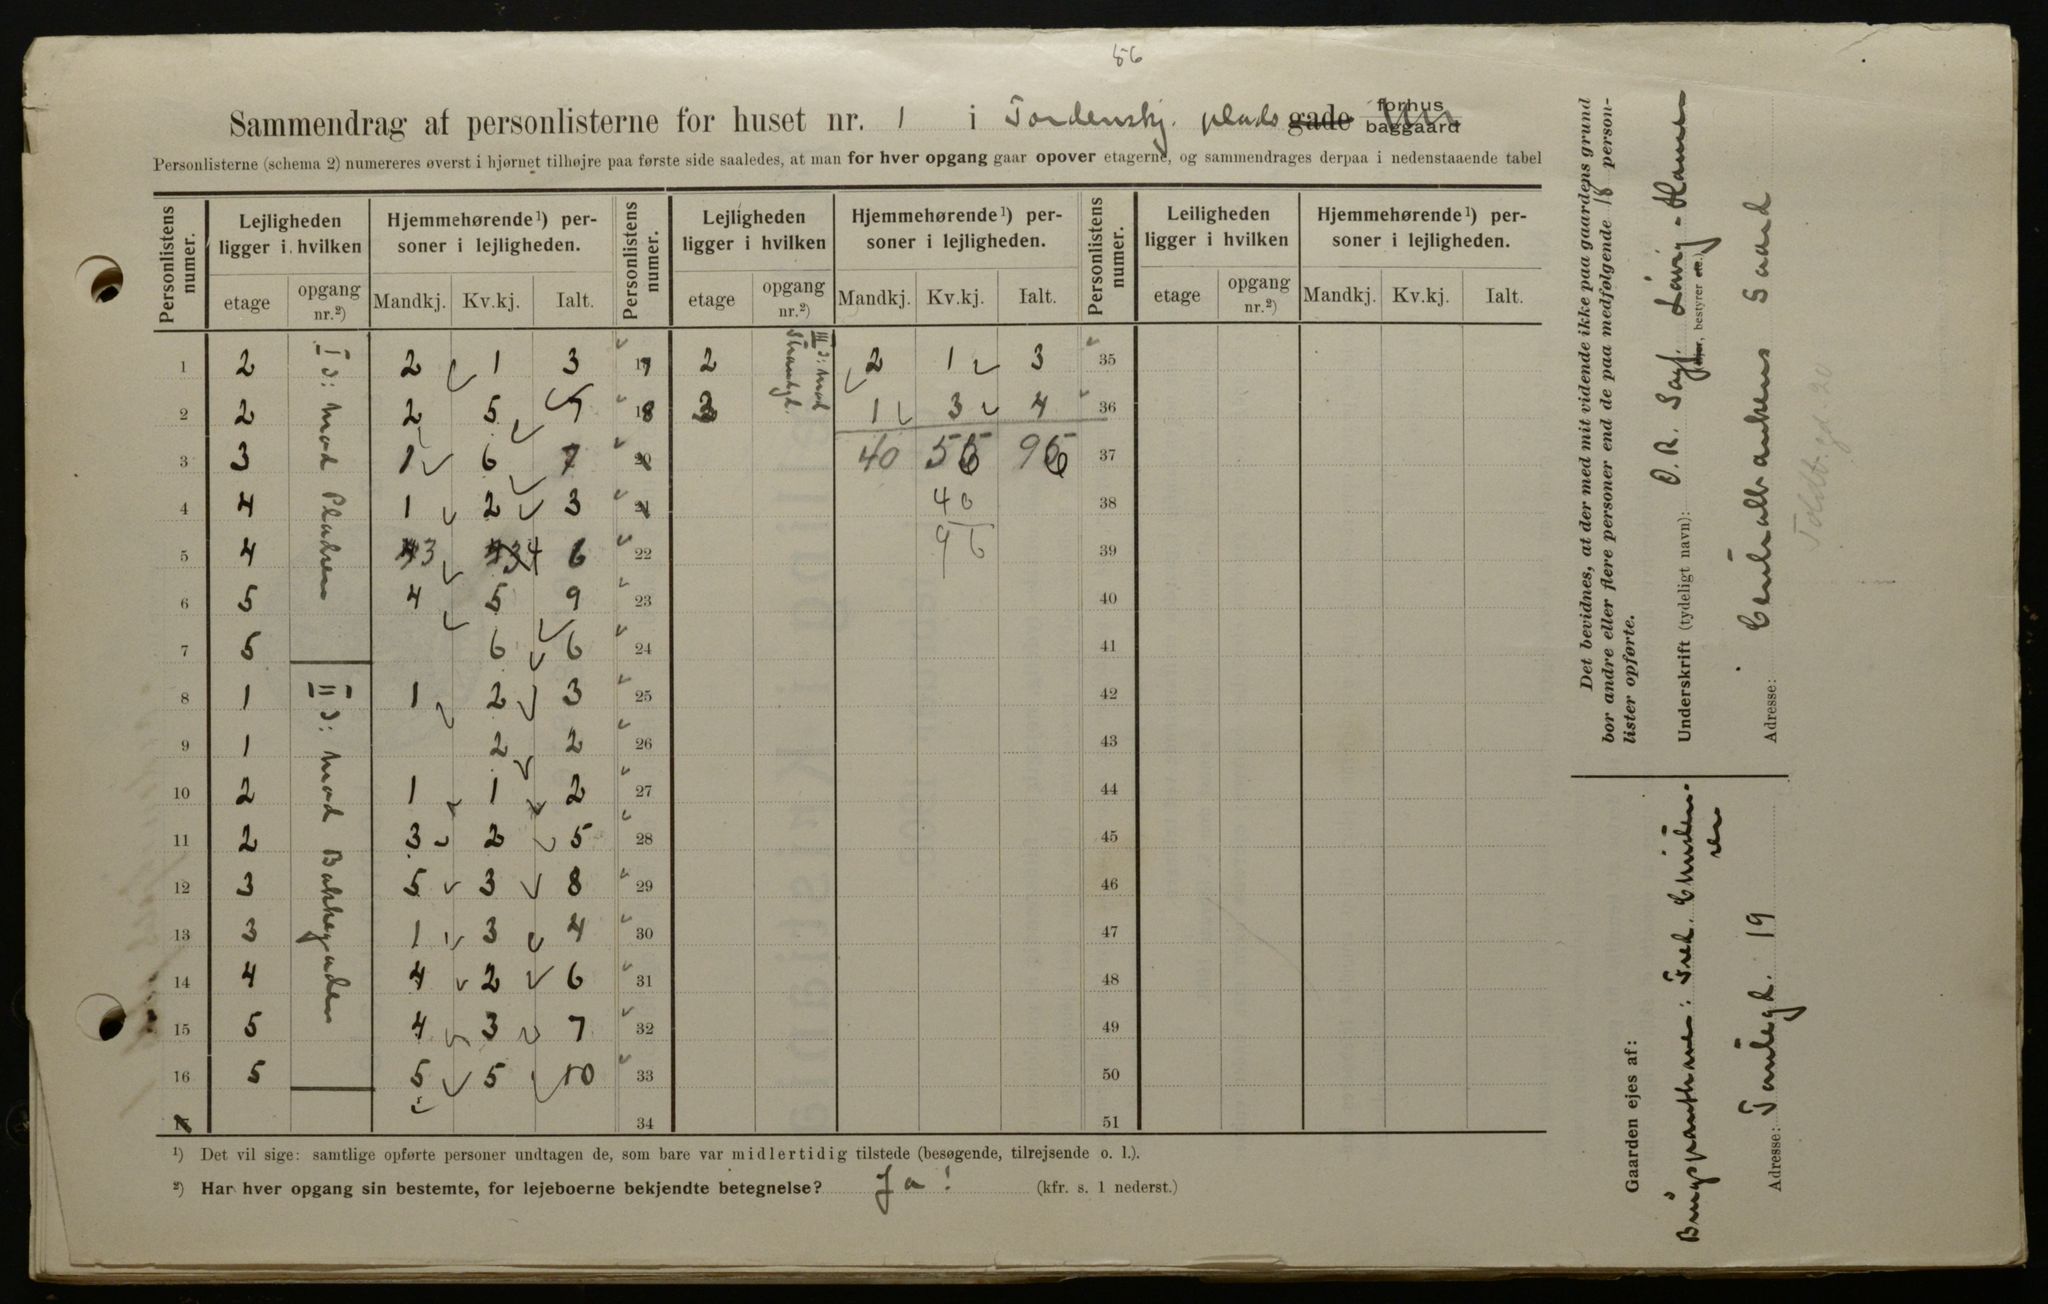 56
Sammendrag af personlisterne for huset nr. 1 i Tordenskj. plads gade forhus baggaard
Personlisterne (schema 2) numereres øverst i hjørnet tilhøjre paa første side saaledes, at man for hver opgang gaar opover etagerne, og sammendrages derpaa i nedenstaaende tabel
Personlistens numer. Lejligheden ligger i hvilken Hjemmehørende¹) personer i lejligheden. Personlistens numer. Lejligheden ligger i hvilken Hjemmehørende¹) personer i lejligheden. Personlistens numer. Leiligheden ligger i hvilken Hjemmehørende¹) personer i lejligheden.
etage opgang nr.²) Mandkj. Kv.kj. Ialt. etage opgang nr.²) Mandkj. Kv.kj. Ialt. etage opgang nr.²) Mandkj. Kv.kj. Ialt.
I ɔ: mod Pladsen
II ɔ: mod Bakkegaden
III ɔ: mod Strandgd.
1 2 2 1 3 17 2 2 1 3 35
2 2 2 5 7 18 3 1 3 4 36
3 3 1 6 7 20 40 56 96 37
4 4 1 2 3 21 40 38
5 4 3 4 6 22 96 39
6 5 4 5 9 23 40
7 5 6 6 24 41
8 1 1 2 3 25 42
9 1 2 2 26 43
10 2 1 1 2 27 44
11 2 3 2 5 28 45
12 3 5 3 8 29 46
13 3 1 3 4 30 47
14 4 4 2 6 31 48
15 5 4 3 7 32 49
16 5 5 5 10 33 50
34 51
¹) Det vil sige: samtlige opførte personer undtagen de, som bare var midlertidig tilstede (besøgende, tilrejsende o. l.).
²) Har hver opgang sin bestemte, for lejeboerne bekjendte betegnelse? Ja! (kfr. s. 1 nederst.)
Det bevidnes, at der med mit vidende ikke paa gaardens grund
bor andre eller flere personer end de paa medfølgende 18 person-
lister opførte.
Underskrift (tydeligt navn): O. R. Sagf. Løvig-Hansen
(ejer, bestyrer etc.)
Adresse: Centralbankens Gaard
Toldbgd. 20
Gaarden ejes af:
Brugspanthaver: Fred. Christen-
sen
Adresse: Tomtegd. 19